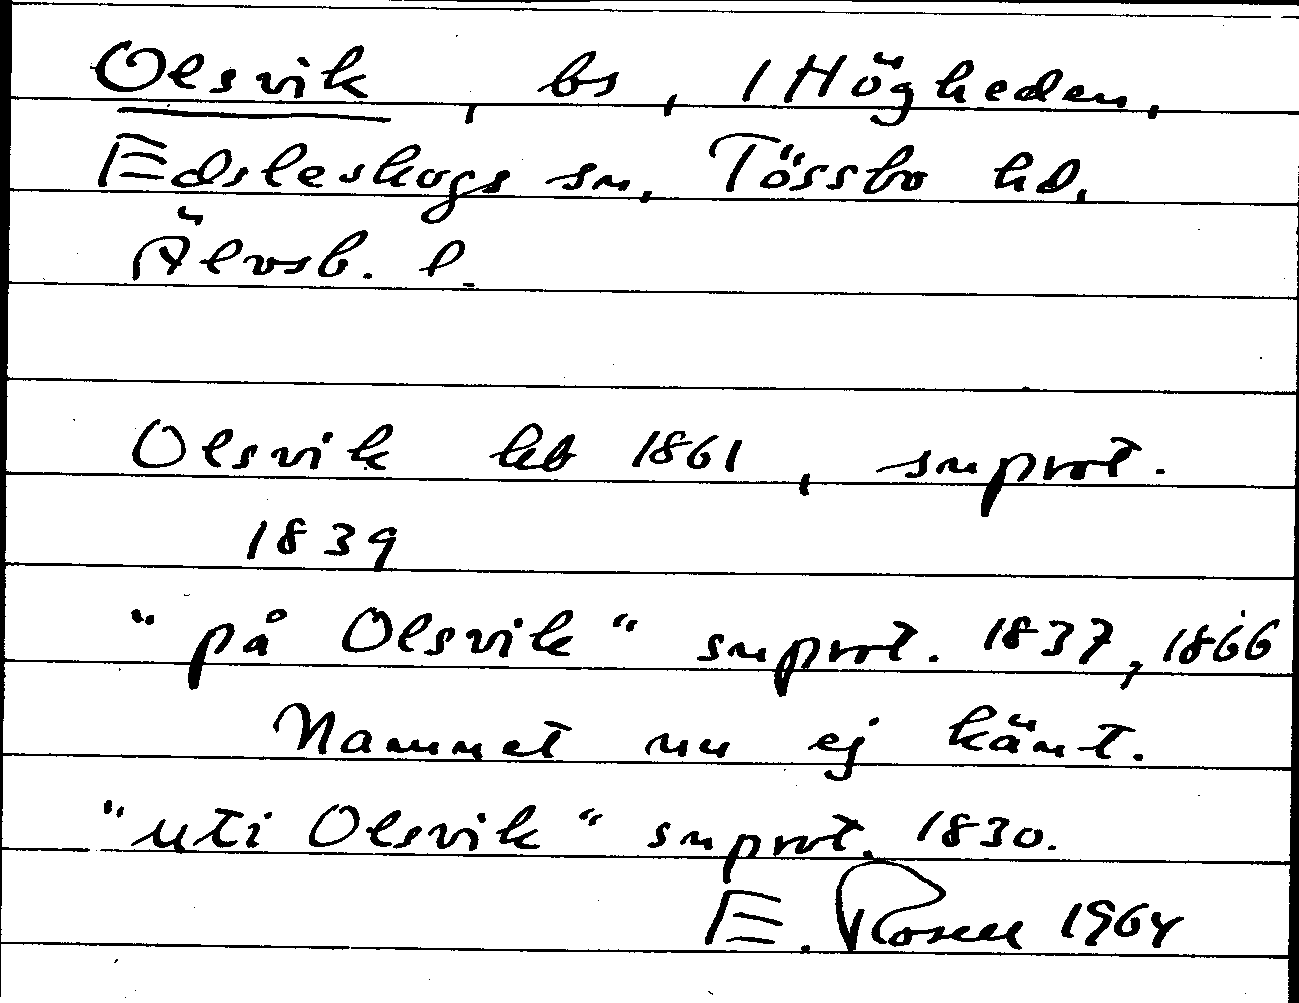 Olsvik, bs, 1 Högheden,
Edsleskogs sn, Tössbo hd,
Älvsb. l.
Olsvik hb 1861, snprot.
1839
"på Olsvik" snprot. 1837, 1866
Namnet nu ej känt.
"uti Olsvik" snprot. 1830.
E. Rosell 1964